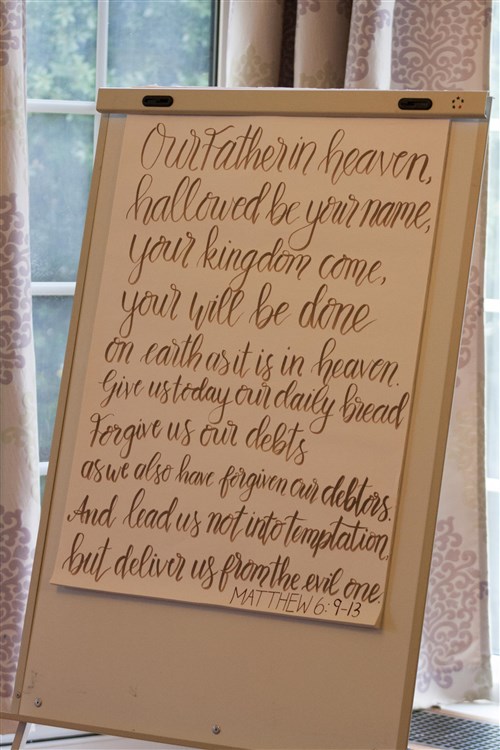 Our Father in heaven,
hallowed be your name,
your kingdom come,
your will be done
on earth as it is in heaven.
Give us today our daily bread
Forgive us our debts
as we also have forgiven our debtors.
And lead us not into temptation,
but deliver us from the evil one.
MATTHEW 6:9-13